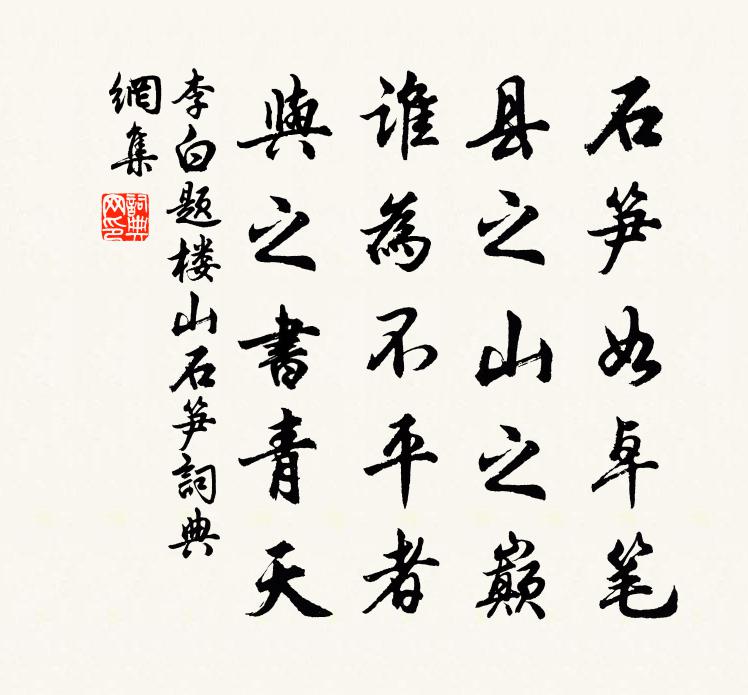 石笋如卓笔
县之山之巅
谁為不平者
與之書青天
李白题楼山石笋詞典
網集
詞典
网印